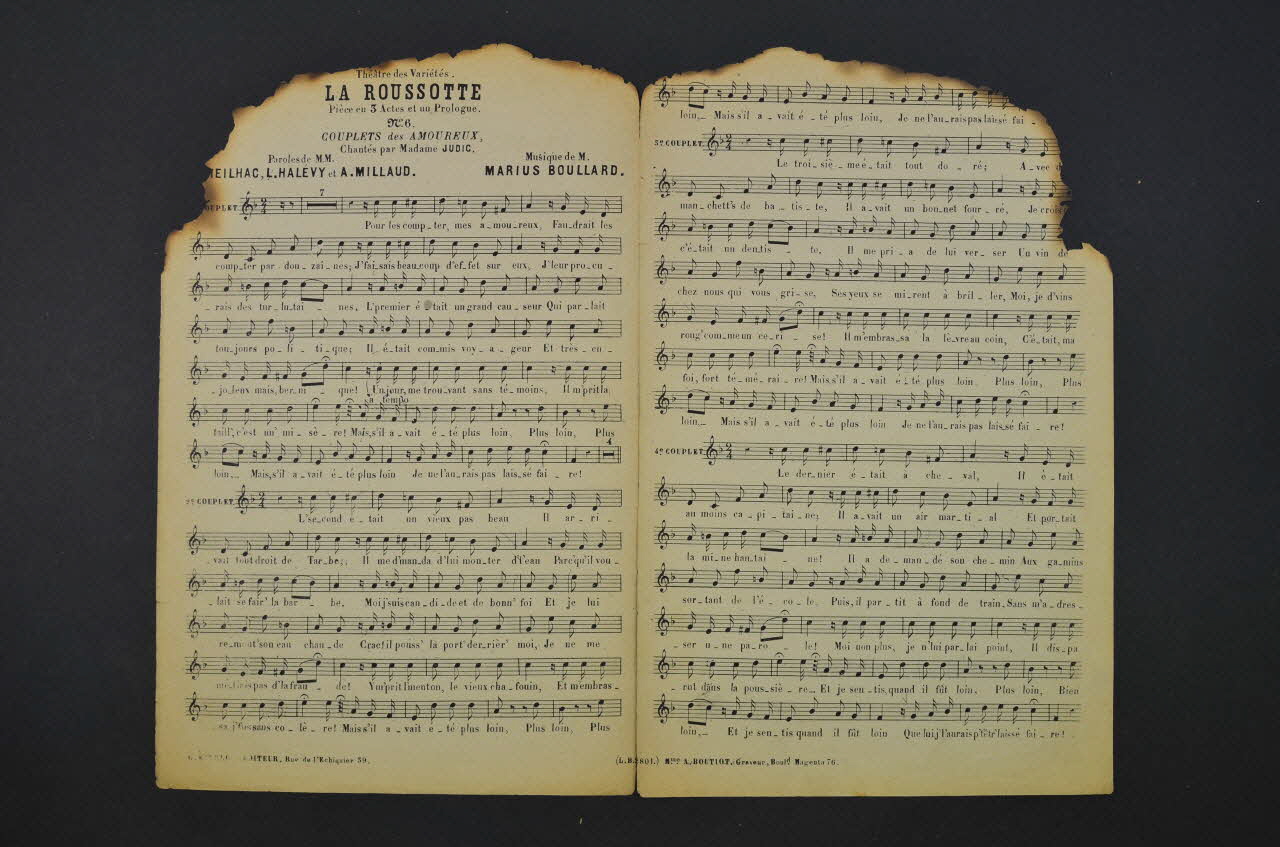 Théâtre des Variétés.
LA ROUSSOTTE
Pièce en 3 Actes et un Prologue.
Nº 6.
COUPLETS des AMOUREUX,
Chantés par Madame JUDIC.
Paroles de MM.
Musique de M.
MEILHAC, L. HALÉVY et A. MILLAUD.
MARIUS BOULLARD.
COUPLET.
7
Pour les comp_ter, mes a_mou_reux, Fau_drait les
comp_ter par dou_zai_nes; J'fai_sais beau_coup d'ef_fet sur eux, J'leur pro_cu_
_rais des tur_lu_tai_nes, L'premier é_tait un grand cau_seur Qui par_lait
tou_jours po_li_ti_que; Il_é_tait com_mis voy_a_geur Et très_en_
_jo_leux mais, ber_ni_que! Un jour, me trou_vant sans té_moins, Il m'prit la
a tempo
taill', c'est un' mi_sè_re! Mais, s'il a_vait é_té plus loin, Plus loin, Plus
4
loin_ Mais, s'il a_vait é_té plus loin Je ne l'au_rais pas lais_sé fai_re!
2e COUPLET.
L'se_cond é_tait un vieux pas beau Il ar_ri_
_vait tout droit de Tar_be;; Il me d'man_da d'lui mon_ter d'l'eau Parc' qu'il vou_
_lait se fair' la bar_be. Moi j'suis can_di_de et de bonn' foi Et je lui
re_mont' son eau chau_de Crac! il pouss' la port' der_rièr' moi, Je ne me
mé_fiais pas d'la frau_de! Ym'prit l'menton, le vieux cha_fouin, Et m'embras_
_sa, j'fus sans co_lè_re! Mais s'il a_vait é_té plus loin, Plus loin, Plus
loin,_ Mais s'il a_vait é_té plus loin, Je ne l'au_rais pas laissé fai_
3e COUPLET.
Le troi_siè_me é_tait tout do_ré; A_vec
man_chett's de ba_tis_te, Il a_vait un bon_net four_ré, Je crois
c'é_tait un den_tis_te. Il me pri_a de lui ver_ser Un vin de
chez nous qui vous gri_se, Ses yeux se mi_rent à bril_ler, Moi, je d'vins
roug' com_me un ce_ri_se! Il m'em_bras_sa la lè_vre au coin, C'é_tait, ma
foi, fort té_mé_rai_re! Mais s'il a_vait é_té plus loin, Plus loin, Plus
loin,_ Mais s'il a_vait é_té plus loin Je ne l'au_rais pas lais_sé fai_re!
4e COUPLET.
Le der_nier é_tait à che_val, Il é_tait
au moins ca_pi_tai_ne; Il a_vait un air mar_ti_al Et por_tait
la mi_ne hau_tai_ne! Il a de_man_dé son che_min Aux ga_mins
sor_tant de l'é_co_le, Puis, il par_tit à fond de train, Sans m'a_dres_
_ser u_ne pa_ro_le! Moi non plus, je n'lui par_lai point, Il dis_pa_
rut dans la pous_siè_re_ Et je sen_tis, quand il fût loin, Plus loin, Bien
loin,_ Et je sen_tis quand il fût loin Que lui j'l'aurais p't'êtr' laissé fai_re!
ÉDITEUR, Rue de l'Echiquier 39.
(L.B. 801.) Mme A. BOUTIOT, Graveur, Boulᵈ Magenta 76.